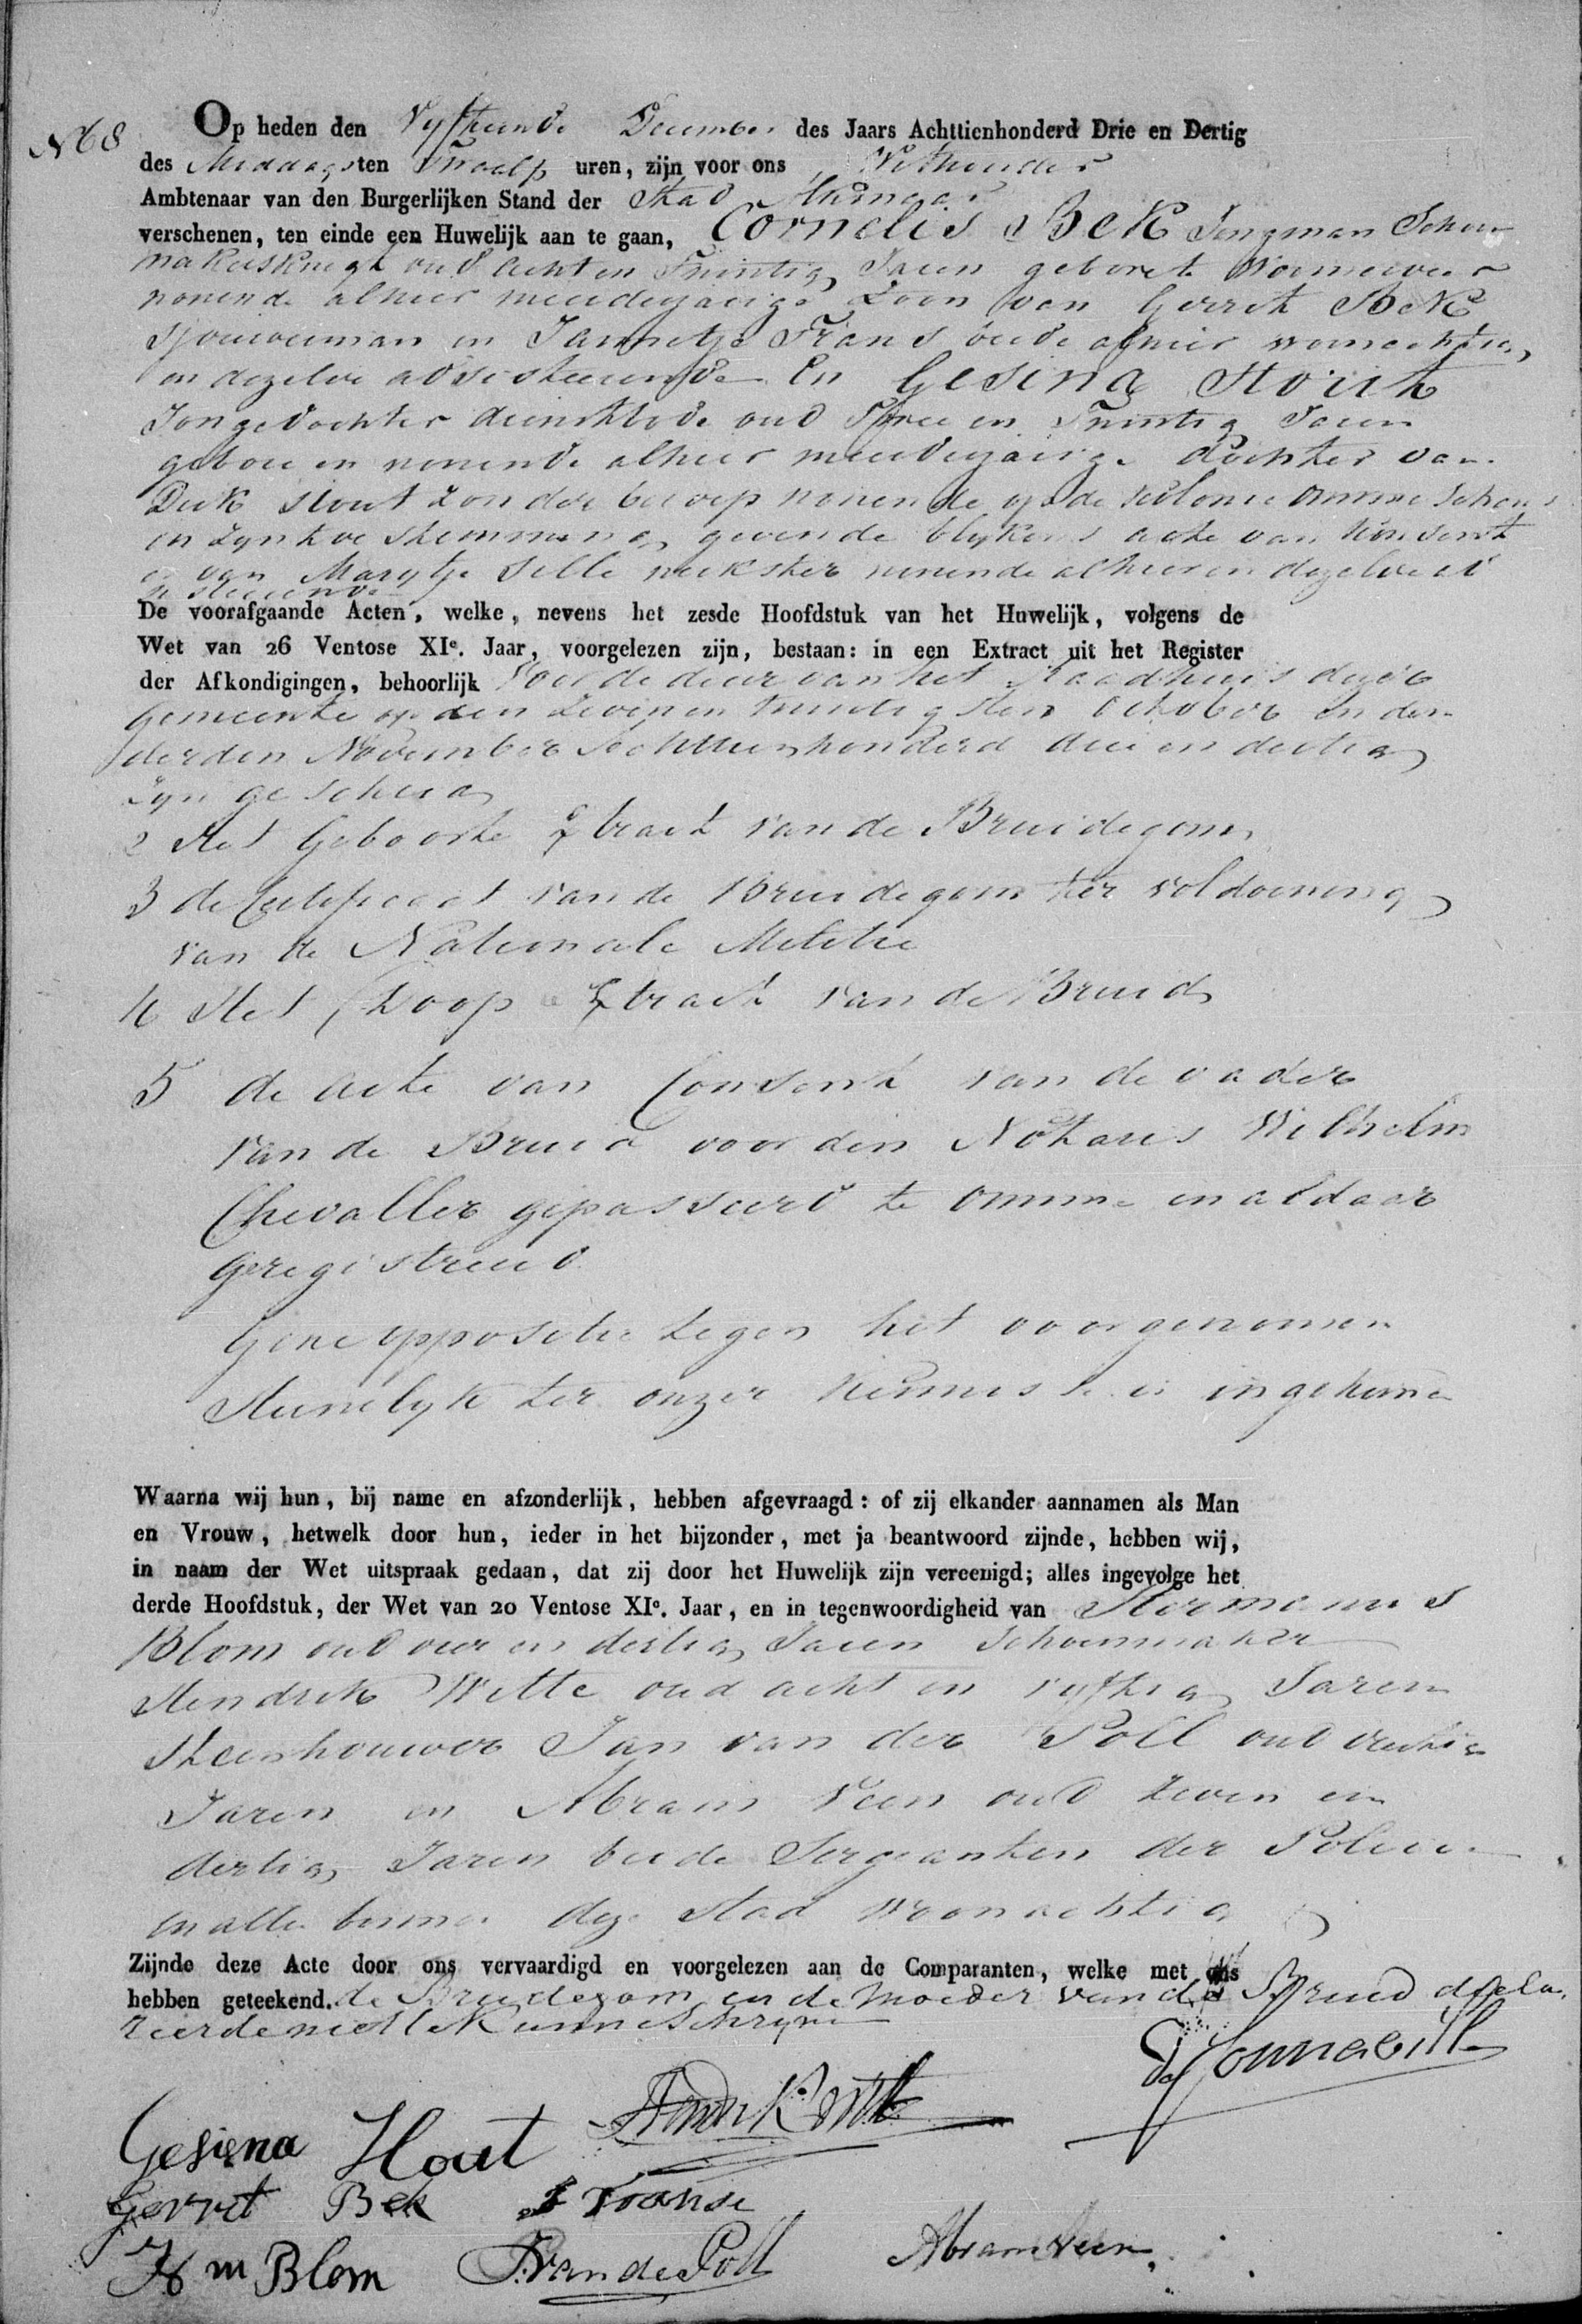 N 68 Op heden den Vyftiende December des Jaars Achttienhonderd Drie en Dertig
des Middags ten Twaalf uren, zijn voor ons Wethouder
Ambtenaar van den Burgerlijken Stand der Stad Alkmaar
verschenen, ten einde een Huwelijk aan te gaan, Cornelis Bek Jongman Schoe
makersknegt oud acht en Twintig Jaren gebore te Wormerveer
wonende alhier meerderjarige Zoon van Gerrit Bek
sjouwerman en Jannetje Frans beide alhier woonachtig
en dezelve adsisteerende En Gesina Hout
Jongedochter dienstbode oud Twee en Twintig Jaren
gebore en wonende alhier meerderjarige dochter van
Dirk Hout zonder beroep wonende op de Kolonie Ommerschans
en Zyn toe stemming gevende blykens acte van Konsent
en van Marytje Selle werkster wonende alhier en dezelve ad
sisteerende
De voorafgaande Acten, welke, nevens het zesde Hoofdstuk van het Huwelijk, volgens de
Wet van 26 Ventose XIe. Jaar, voorgelezen zijn, bestaan: in een Extract uit het Register
der Afkondigingen, behoorlijk voor de deur van het Raadhuis dezer
Gemeente op den Zeven en twintigsten October en den
derden November Achttienhonderd drie en dertig
zyn geschied
2 Het Geboorte Extract van de Bruidegom
3 de Certificaat van de Bruidegom ter voldoening
van de Nationale Militie
4 Het Doop Extract van de Bruid
5 de acte van Consent van de vader
van de Bruid voor den Notaris Wilhelm
Chevallier gepasseerd te Omme en aldaar
geregistreerd
Gene oppositie tegen het voorgenomen
Huwelyk ter onzer kennisse is ingekomen
Waarna wij hun, bij name en afzonderlijk, hebben afgevraagd: of zij elkander aannamen als Man
en Vrouw, hetwelk door hun, ieder in het bijzonder, met ja beantwoord zijnde, hebben wij,
in naam der Wet uitspraak gedaan, dat zij door het Huwelijk zijn vereenigd; alles ingevolge het
derde Hoofdstuk, der Wet van 20 Ventose XIe. Jaar, en in tegenwoordigheid van Hermanus
Blom oud vier en dertig Jaren Schoenmaker
Hendrik Witte oud acht en vyftig Jaren
Steenhouwer Jan van der Poll oud veertig
Jaren en Abram Veen oud zeven en
dertig Jaren beide Sergeanten der Policie
en alle binnen deze Stad woonachtig
Zijnde deze Acte door ons vervaardigd en voorgelezen aan de Comparanten, welke met ons
hebben geteekend. de Bruidegom en de Moeder van de Bruid dekla
reerde niet te Kunne Schryve
Gesiena Hout
Gerret Bek J Franse
Hm Blom J van de Poll Abram Veen